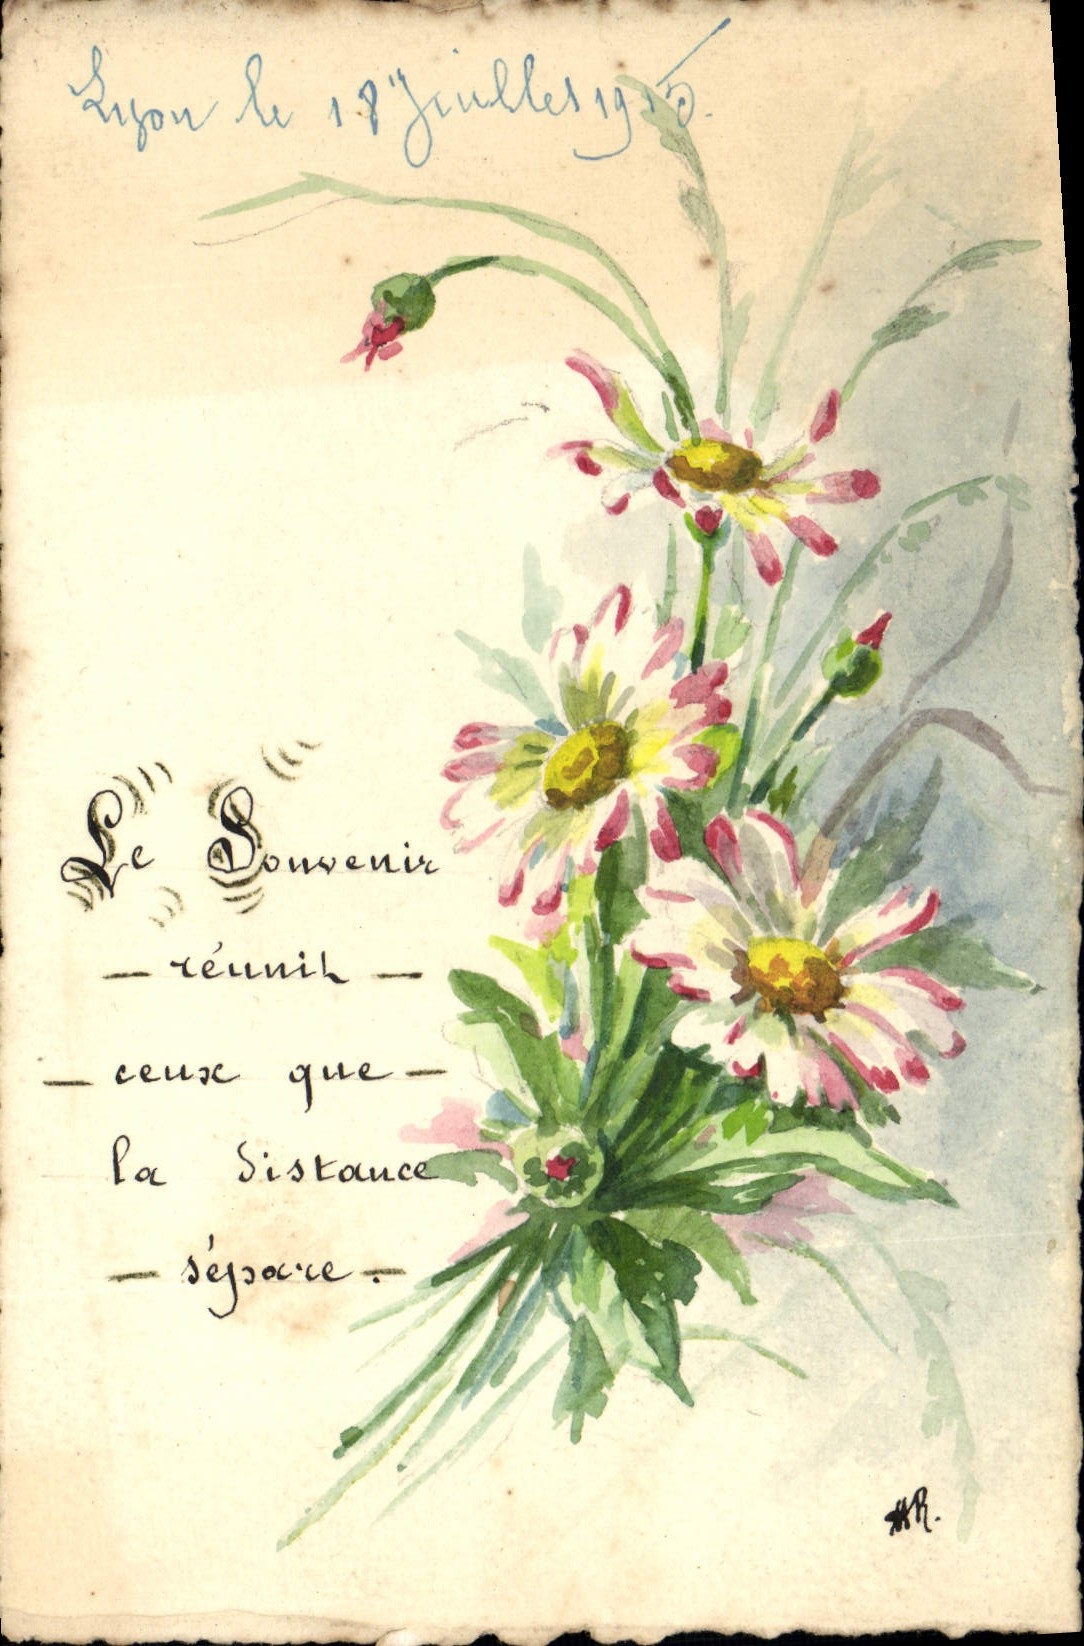 Lyon le 18 Juilles 1915.
Le Souvenir
— réunit —
— ceux que —
la distance
— sépare. —
HR.